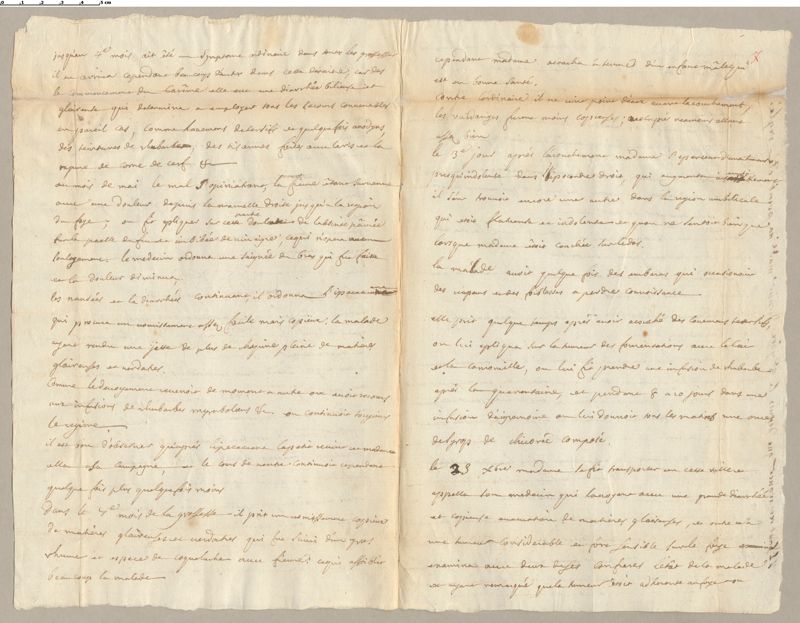 jusqu'au 4e mois ait été un symptome ordinaire dans tous les grossesses
il en arriva cependant beaucoup dans cette derniere, car des
le commencement du Carême elle eut une diarrhée bilieuse et
glaireuse qui determina a employer tous les secours convenables
en pareil cas, comme lavemens detersifs et quelquefois anodyns,
des teintures de rhubarbe, des tisannes faites avec le ris et la
rapure de corne de cerf &c
au mois de mai le mal s'opiniatrant, la fievre étant survenue
avec une douleur depuis la mamelle droite jusqu'a la region
du foye, on fit apliquer sur cette
soulagement. le medecin ordonna une saignée du bras qui fut faite
et la douleur diminua,
les nausées et la diarrhée continuant, il ordonna l'ipecacuana
qui procura un vomissement assez facile mais copieux. la malade
ayant rendu une jatte de plus de chopine pleine de matieres
glaireuses et verdatres.
Comme le devoyement revenoit de moment a autre on avoit recours
aux infusions de rhubarbe myrobolans &c. on continuoit toujours
le regime.
il est bon d'observer qu'après l'ipecacuana la
alla a sa campagne, et le cours de ventre continuoit cependant
quelque fois plus quelque fois moins
Dans le 7e mois de la grossesse il prit un vomissement copieux
de matieres glaireuses et verdatres qui fut suivi d'un gros
rhume et espece de coqueluche avec fievre, ce qui affoiblit
beaucoup la malade
cependant madame accoucha a terme d'un enfant mâle qui
est en bonne santé.
Contre l'ordinaire il ne vint point d'eau avant l'accouchement,
les vuidanges furent moins copieuses,
assez bien
le 3e jour après l'accouchement madame s'apercut d'une tumeur
presqu'indolente dans l'hypocondre droit, qui augmenta
il s'en trouvoit encore une autre dans la region umbilicale
qui etoit flatueuse et indolente et qu'on ne sentoit bien que
lorsque madame etoit couchée sur le dos.
la malade avoit quelque fois des embaras qui occasionoient
des vapeurs et des foiblesses a perdre connoissance
elle prit quelque temps après avoir accouché des lavemens
on lui apliqua sur la tumeur des fomentations avec le lait
et la camomille, on lui fit prendre une infusion de rhubarbe
après la quarantaine, et pendant 8 a 10 jours dans une
infusion d'aigremoine on lui donnoit tous les matins une once
de syrop de chicorée composé.
le 23 xbre madame se fit transporter en cette ville et
appella son medecin qui la voyant avec une grande diarrhée
et copieuse evacuation de matieres glaireuses, et outre cela
une tumeur considerable et fort sensible sur le foye
examina avec deux de ses confreres l'état de la malade
et ayant remarqué que la tumeur etoit adherente au foye on